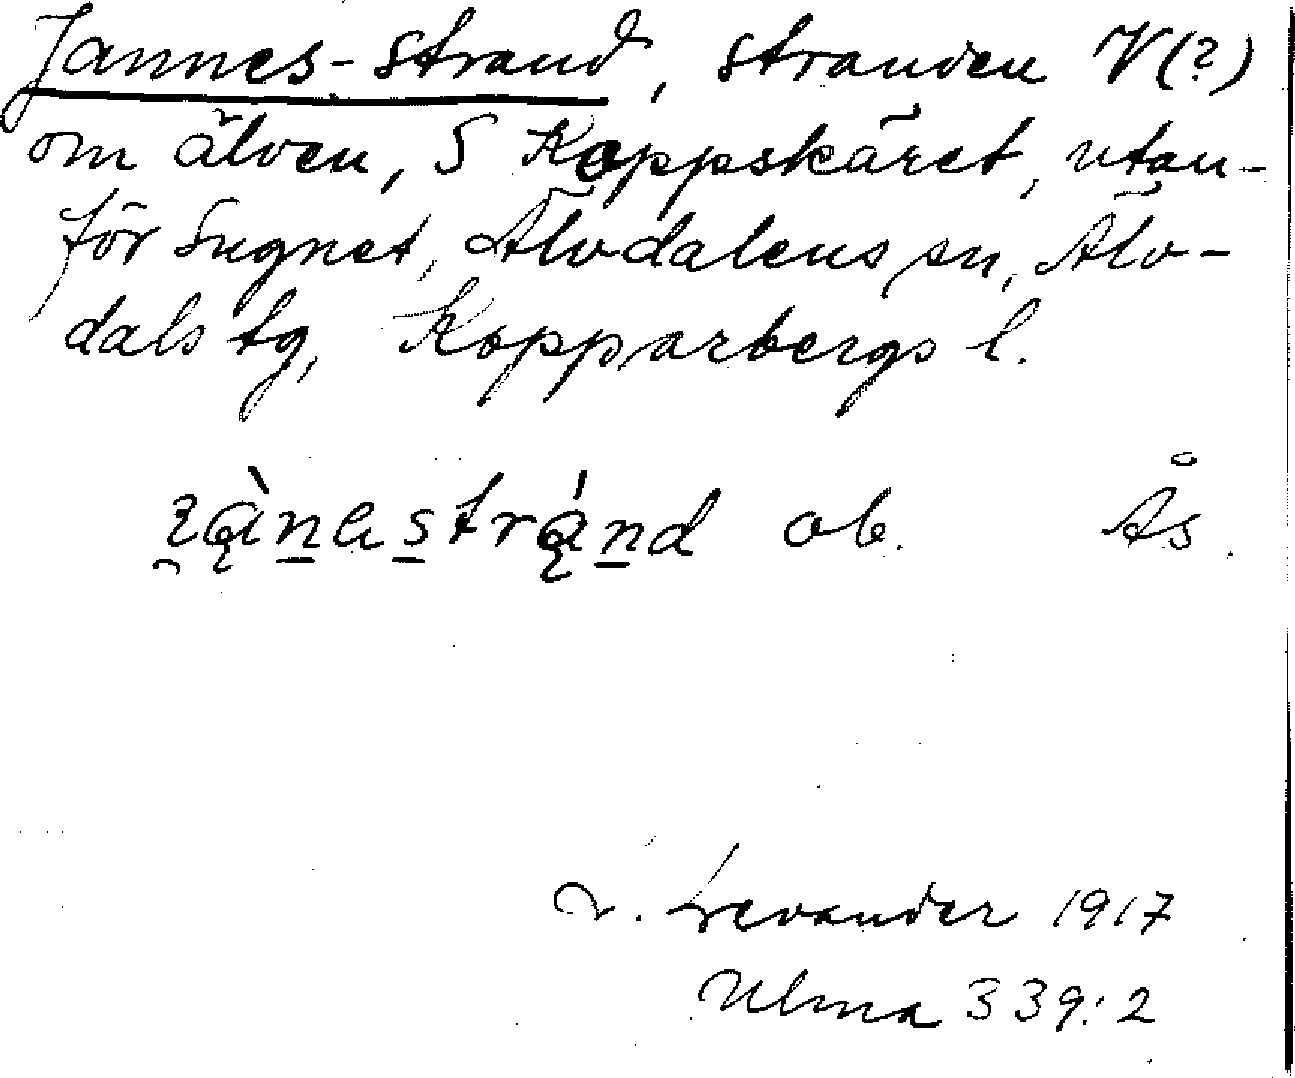 Jannes-strand, stranden V(?)
om älven, S Koppskäret, utan-
för Sugnet, Älvdalens sn, Älv-
dals tg, Kopparbergs l.
ob. Ås.
L. Levander 1917
Ulma 339:2